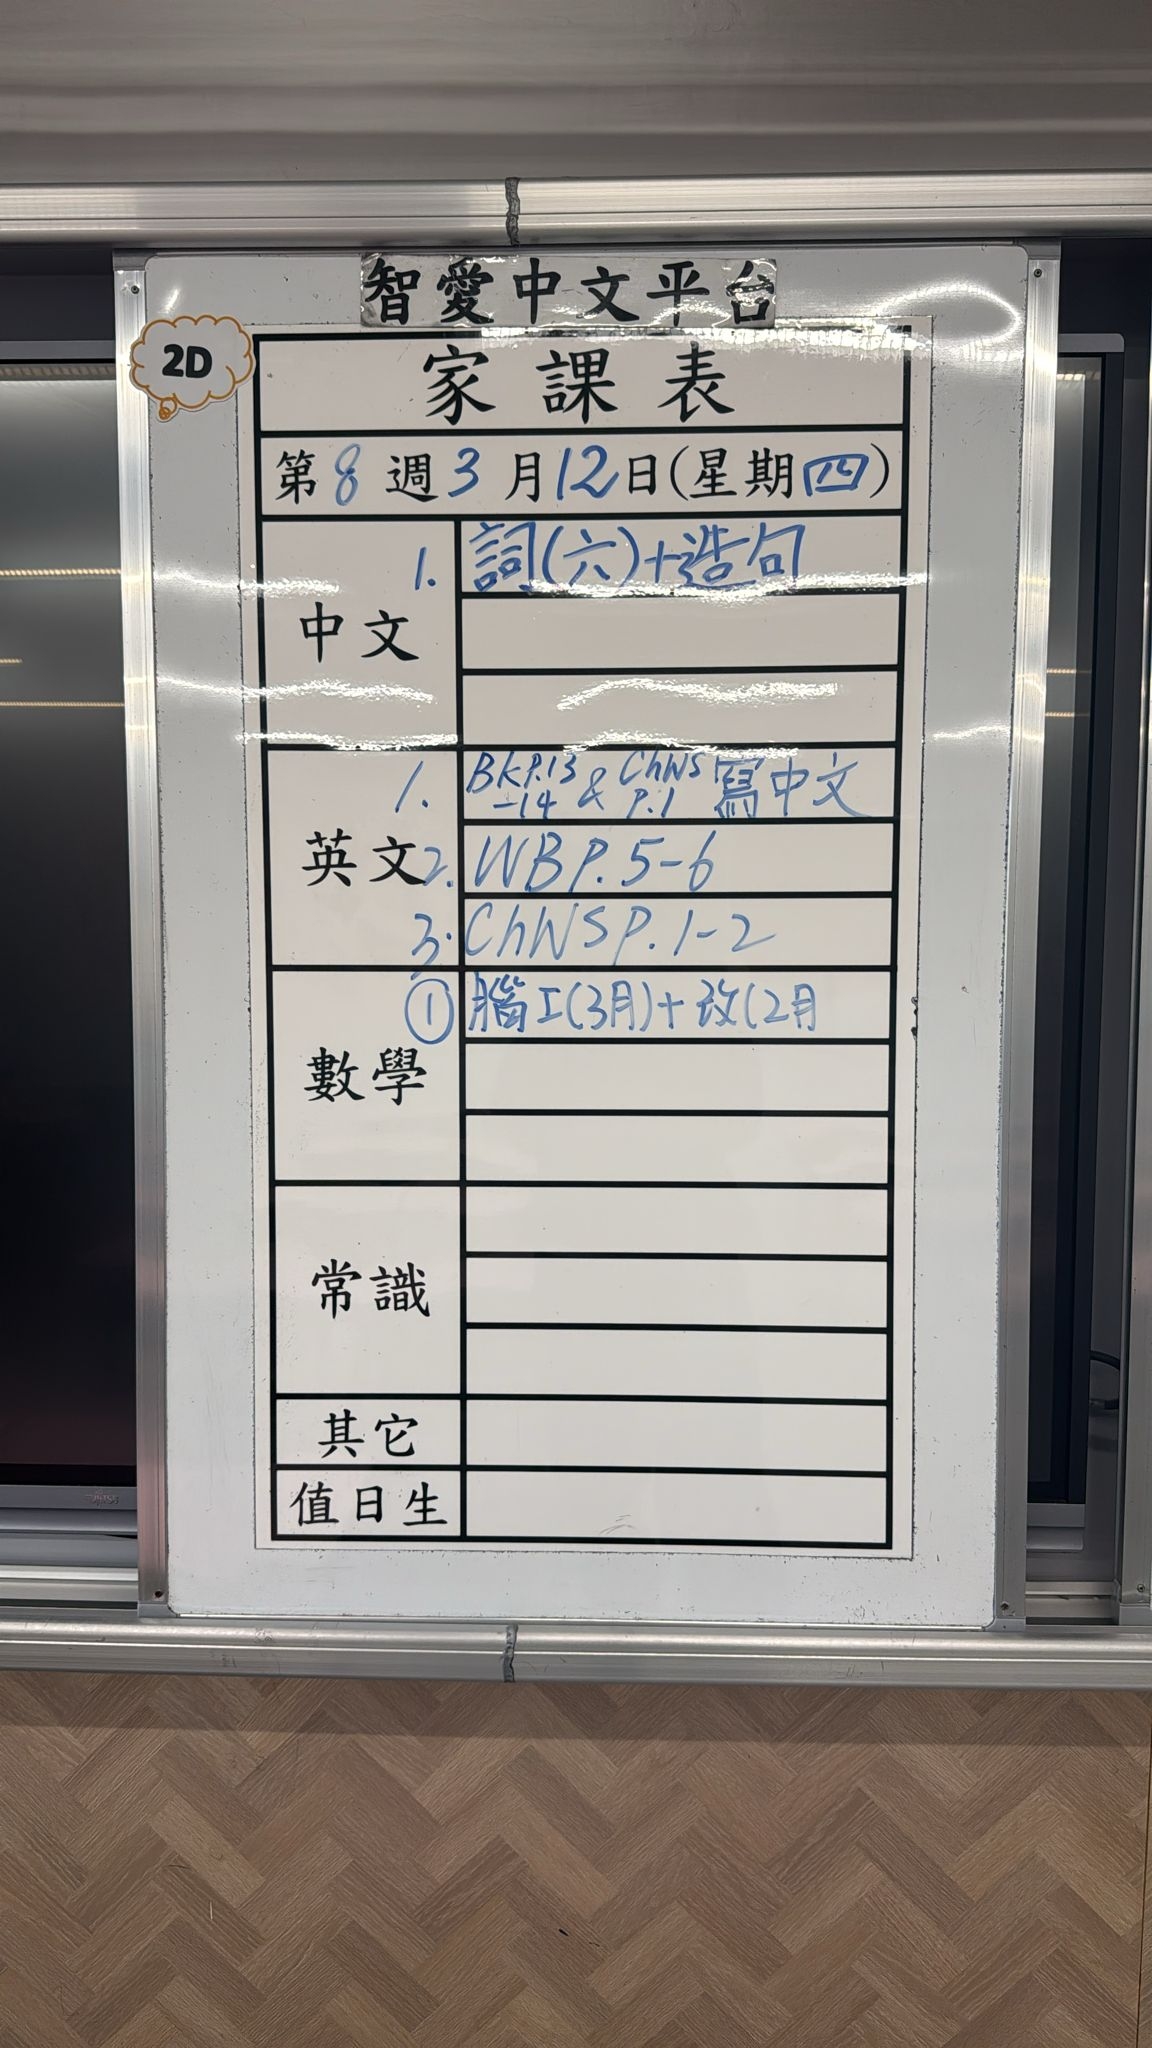 智愛中文平台
2D
家課表
第8週3月12日(星期四)
中文
1. 詞(六)+造句
英文
1. BKP.13-14 & ChWS P.1 寫中文
2. WBP.5-6
3. ChWSP.1-2
數學
① 腦工(3月)+改(2月
常識
其它
值日生